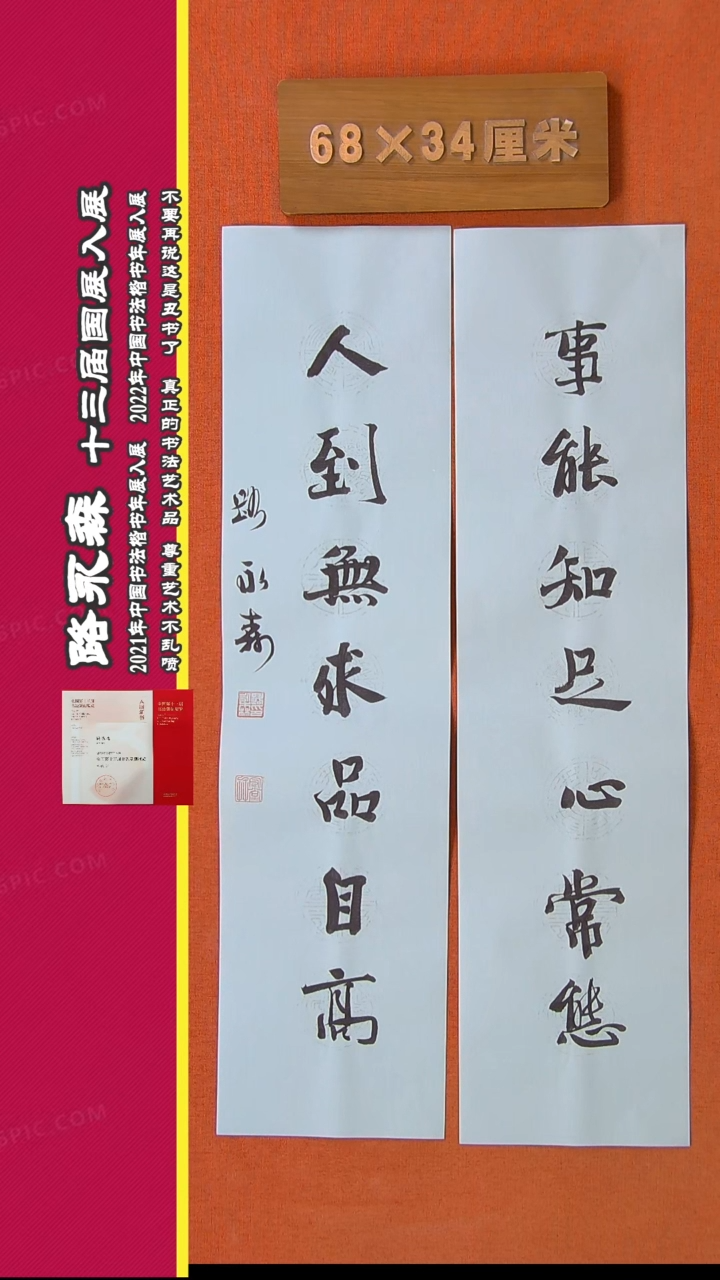 68×34厘米
事能知足心常態
人到無求品自高
路永森
路永森 十三届国展入展
2021年中国书法楷书年展入展 2022年中国书法楷书年展入展
不要再说这是丑书了 真正的书法艺术品 尊重艺术不乱喷